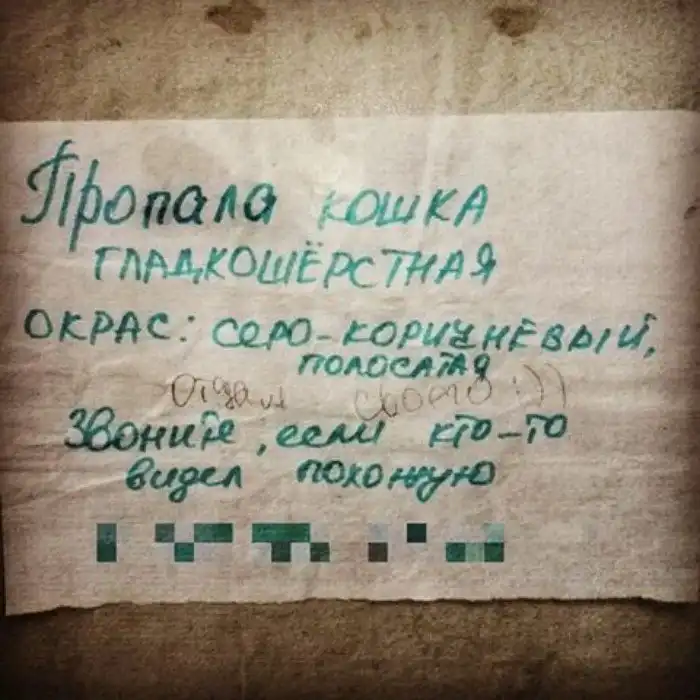 Пропала кошка
гладкошёрстная
окрас: серо-коричневый,
полосатая
Отдам свою :))
Звоните, если кто-то
видел похожую